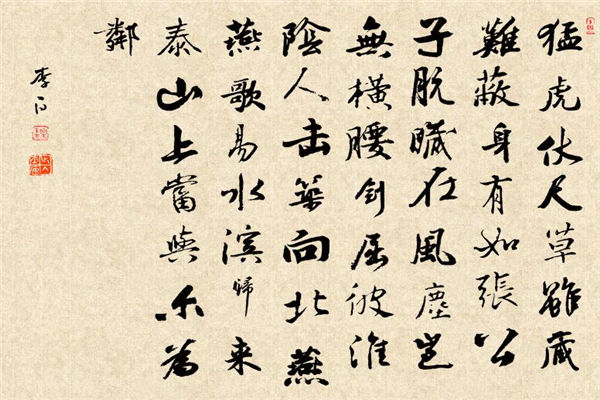 猛虎伏尺草雖藏
難蔽身有如張公
子肮臟在風塵豈
無橫腰剑屈彼淮
陰人击筑向北燕
燕歌易水滨歸来
泰山上當與尔為
鄰
李